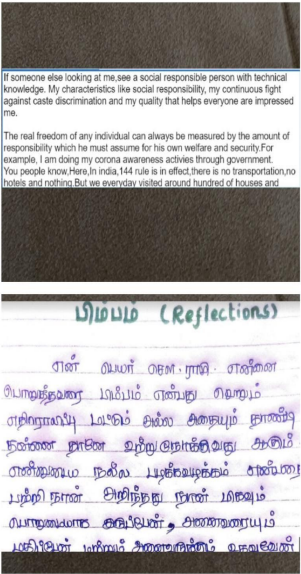 If someone else looking at me,see a social responsible person with technical
knowledge. My characteristics like social responsibility, my continuous fight
against caste discrimination and my quality that helps everyone are impressed
me.
The real freedom of any individual can always be measured by the amount of
responsibility which he must assume for his own welfare and security.For
example, I am doing my corona awareness activies through government.
You people know,Here,In india,144 rule is in effect,there is no transportation,no
hotels and nothing.But we everyday visited around hundred of houses and
பிம்பம் (Reflections)
என் பெயர் செள. ராஜி. என்னை
பொறுத்தவரை பிம்பம் என்பது வெறும்
மட்டும் அல்ல அதையும் தாண்டி
தன்னை தானே உற்று நோக்குவது ஆகும்
என்னுடைய நல்ல பழக்கவழக்கம்
பற்றி நான் அறிந்தது நான் மிகவும்
பொறுமையாக இருப்பேன், அனைவரையும்
மதிப்பேன் மற்றும் அனைவருக்கும் உதவுவேன்